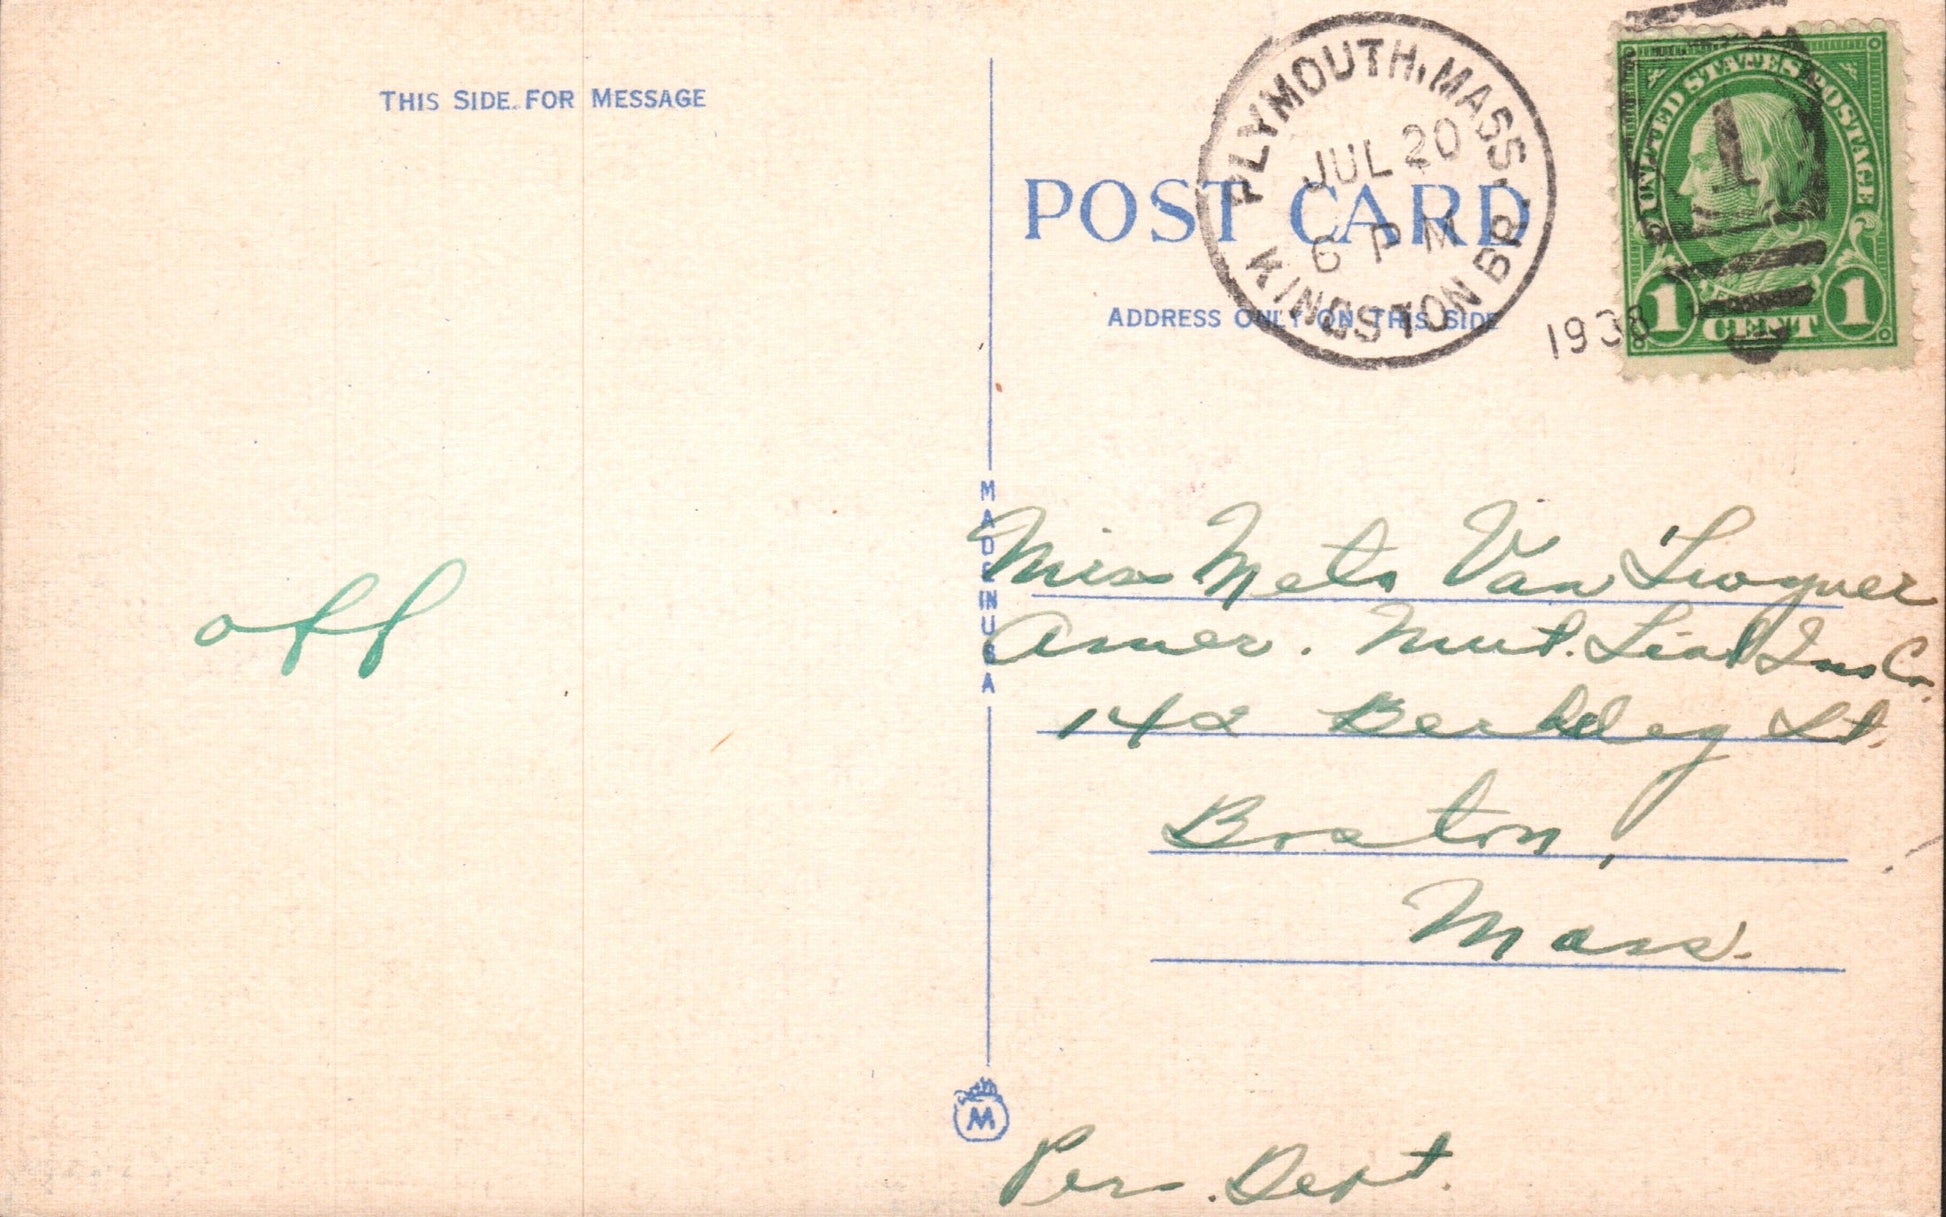 THIS SIDE FOR MESSAGE
off
POST CARD
ADDRESS ONLY ON THIS SIDE
PLYMOUTH, MASS.
JUL 20
6 PM
KINGSTON BR.
1938
UNITED STATES POSTAGE
1 CENT 1
MADE IN USA
Miss Meta Van
Amer. Mut. Liab Ins Co.
142 Berkeley St.
Boston,
Mass.
M
Pers. Dept.